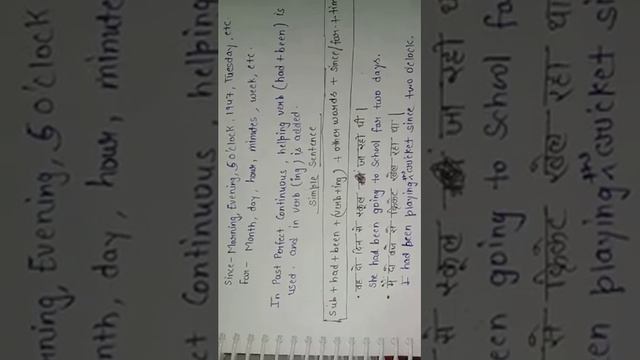 Since - Morning, Evening, 5 O'clock, 1947, Tuesday, etc
For - Month, day, hour, minutes, week, etc.
In Past Perfect Continuous, helping verb (had+been) is
used. and in verb (ing) is added.
Simple Sentence
Sub + had + been + (verb+ing) + other words + since/for + time
• वह दो दिन से स्कूल जा रही थी |
She had been going to School for two days.
• मैं दो बजे से क्रिकेट खेल रहा था |
I had been playing cricket since two oclock.